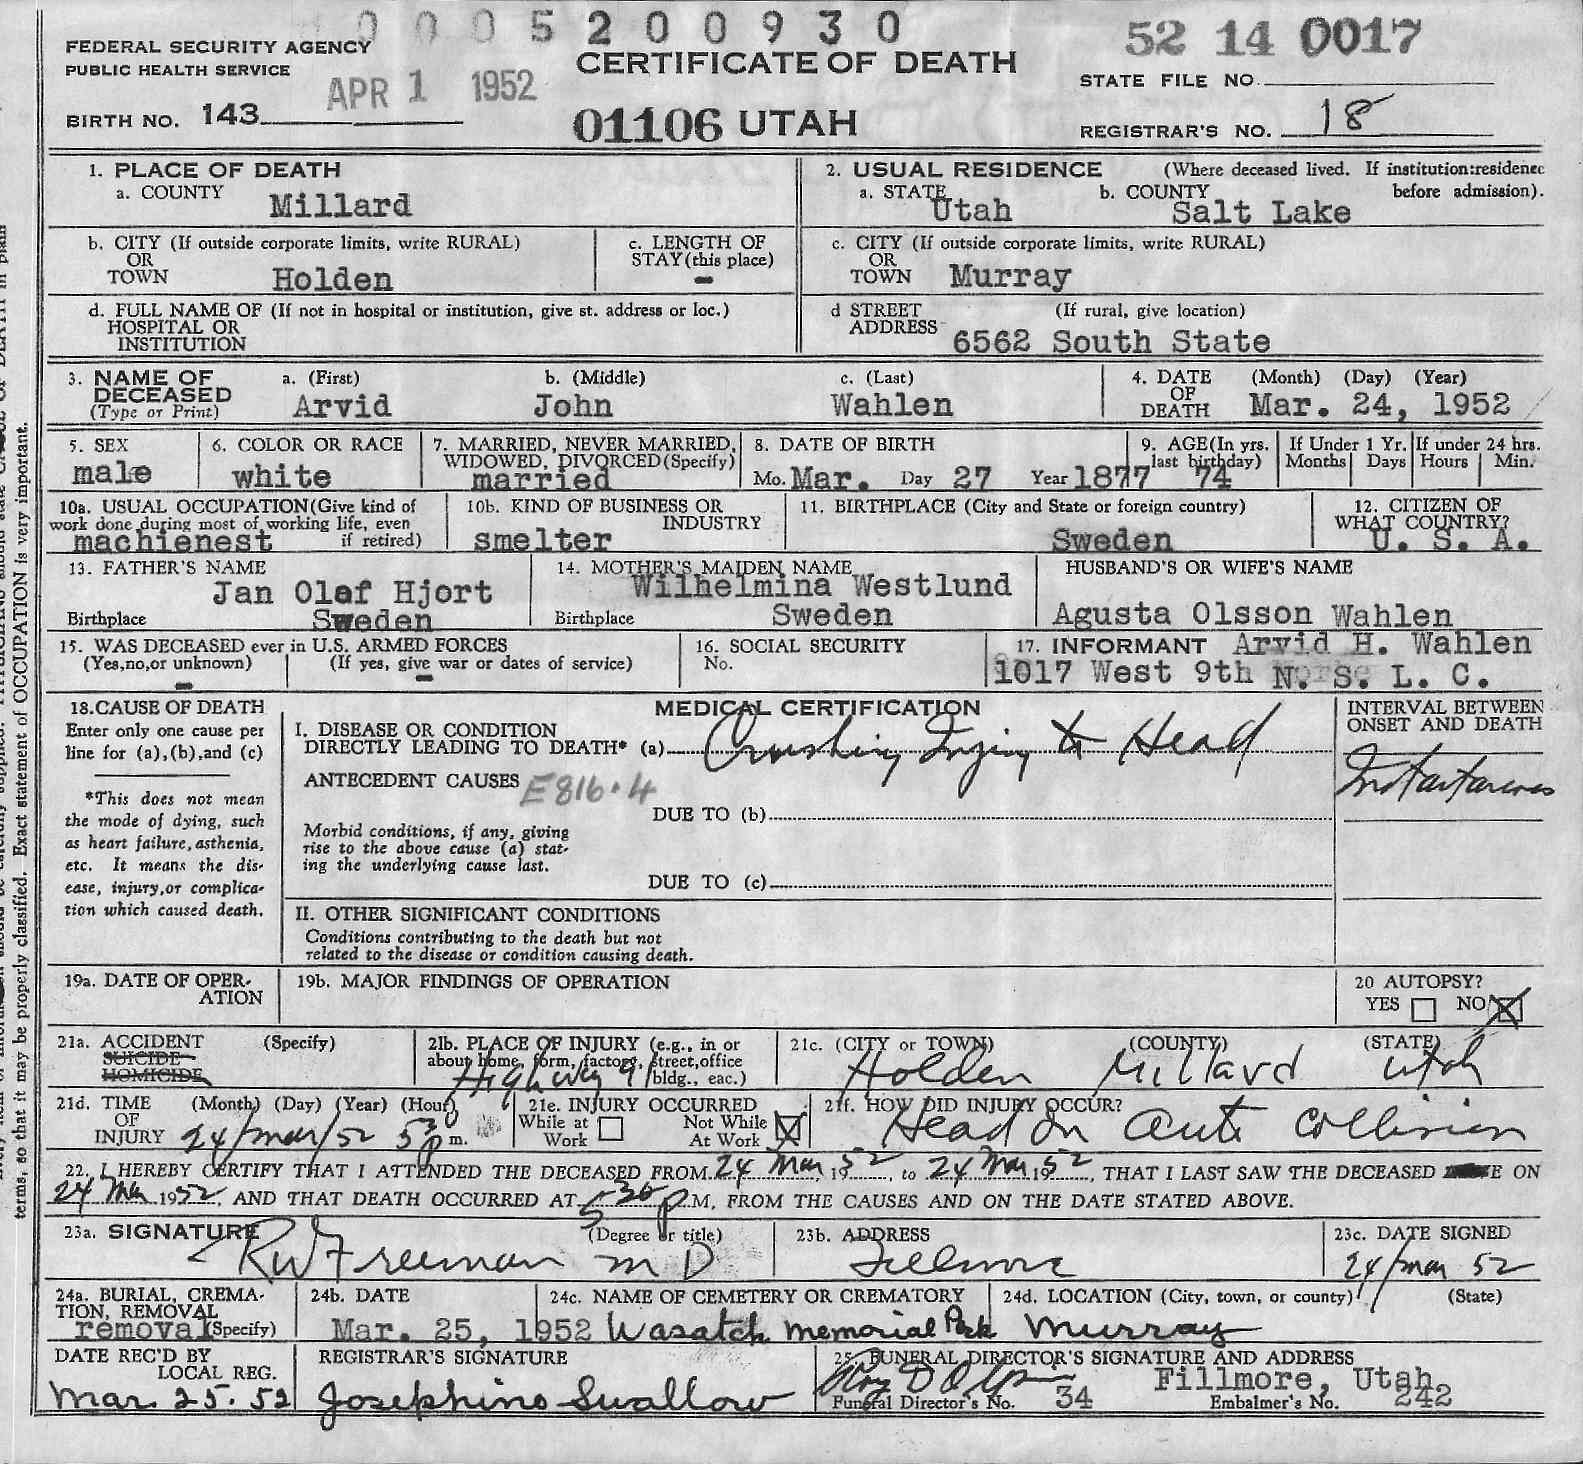 0 0 0 5 2 0 0 9 3 0
52 14 0017
FEDERAL SECURITY AGENCY
PUBLIC HEALTH SERVICE
CERTIFICATE OF DEATH
STATE FILE NO.
APR 1 1952
BIRTH NO. 143
01106 UTAH
REGISTRAR'S NO. 18
1. PLACE OF DEATH
a. COUNTY
Millard
2. USUAL RESIDENCE (Where deceased lived. If institution:residence before admission).
a. STATE
Utah
b. COUNTY
Salt Lake
b. CITY (If outside corporate limits, write RURAL)
OR
TOWN Holden
c. LENGTH OF
STAY(this place)
-
c. CITY (If outside corporate limits, write RURAL)
OR
TOWN Murray
d. FULL NAME OF (If not in hospital or institution, give st. address or loc.)
HOSPITAL OR
INSTITUTION
d STREET (If rural, give location)
ADDRESS
6562 South State
3. NAME OF
DECEASED
(Type or Print)
a. (First)
Arvid
b. (Middle)
John
c. (Last)
Wahlen
4. DATE
OF
DEATH
(Month) (Day) (Year)
Mar. 24, 1952
5. SEX
male
6. COLOR OR RACE
white
7. MARRIED, NEVER MARRIED,
WIDOWED, DIVORCED(Specify)
married
8. DATE OF BIRTH
Mo. Mar. Day 27 Year 1877
9. AGE(In yrs.
last birthday)
74
If Under 1 Yr.
Months Days
If under 24 hrs.
Hours Min.
10a. USUAL OCCUPATION(Give kind of
work done during most of working life, even
if retired)
machienest
10b. KIND OF BUSINESS OR
INDUSTRY
smelter
11. BIRTHPLACE (City and State or foreign country)
Sweden
12. CITIZEN OF
WHAT COUNTRY?
U. S. A.
13. FATHER'S NAME
Jan Olaf Hjort
Birthplace Sweden
14. MOTHER'S MAIDEN NAME
Wilhelmina Westlund
Birthplace Sweden
HUSBAND'S OR WIFE'S NAME
Agusta Olsson Wahlen
15. WAS DECEASED ever in U.S. ARMED FORCES
(Yes,no,or unknown) (If yes, give war or dates of service)
- -
16. SOCIAL SECURITY
No.
17. INFORMANT Arvid H. Wahlen
1017 West 9th N. S. L. C.
18.CAUSE OF DEATH
Enter only one cause per
line for (a),(b),and (c)
*This does not mean
the mode of dying, such
as heart failure, asthenia,
etc. It means the dis-
ease, injury,or complica-
tion which caused death.
MEDICAL CERTIFICATION
I. DISEASE OR CONDITION
DIRECTLY LEADING TO DEATH* (a) Crushing Injury to Head
ANTECEDENT CAUSES E816.4
DUE TO (b)
Morbid conditions, if any, giving
rise to the above cause (a) stat-
ing the underlying cause last.
DUE TO (c)
II. OTHER SIGNIFICANT CONDITIONS
Conditions contributing to the death but not
related to the disease or condition causing death.
INTERVAL BETWEEN
ONSET AND DEATH
Instantaneous
19a. DATE OF OPER-
ATION
19b. MAJOR FINDINGS OF OPERATION
20 AUTOPSY?
YES NO
21a. ACCIDENT (Specify)
SUICIDE
HOMICIDE
21b. PLACE OF INJURY (e.g., in or
about home, form, factory, street,office
bldg., eac.)
Highway 91
21c. (CITY or TOWN) (COUNTY) (STATE)
Holden Millard Utah
21d. TIME
OF
INJURY
(Month) (Day) (Year) (Hour)
24/Mar/52 5 30 p m.
21e. INJURY OCCURRED
While at
Work
Not While
At Work
21f. HOW DID INJURY OCCUR?
Head On Auto Collision
22. I HEREBY CERTIFY THAT I ATTENDED THE DECEASED FROM 24 Mar, 1952, to 24 Mar 1952, THAT I LAST SAW THE DECEASED E ON
24 Mar 1952, AND THAT DEATH OCCURRED AT 5 30 P.M, FROM THE CAUSES AND ON THE DATE STATED ABOVE.
23a. SIGNATURE (Degree or title)
RW Freeman M D
23b. ADDRESS
Fillmore
23c. DATE SIGNED
24/Mar 52
24a. BURIAL, CREMA-
TION, REMOVAL
(Specify)
removal
24b. DATE
Mar. 25, 1952
24c. NAME OF CEMETERY OR CREMATORY
Wasatch Memorial Park
24d. LOCATION (City, town, or county) (State)
Murray
DATE REC'D BY
LOCAL REG.
Mar. 25. 52
REGISTRAR'S SIGNATURE
Josephine Swallow
25. FUNERAL DIRECTOR'S SIGNATURE AND ADDRESS
Roy D Olpin Fillmore, Utah
Funeral Director's No. 34 Embalmer's No. 242
terms, so that it may be properly classified. Exact statement of OCCUPATION is very important.